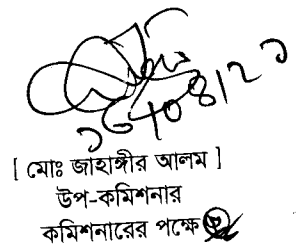 ১৫/০৪/২১
[ মোঃ জাহাঙ্গীর আলম ]
উপ-কমিশনার
কমিশনারের পক্ষে